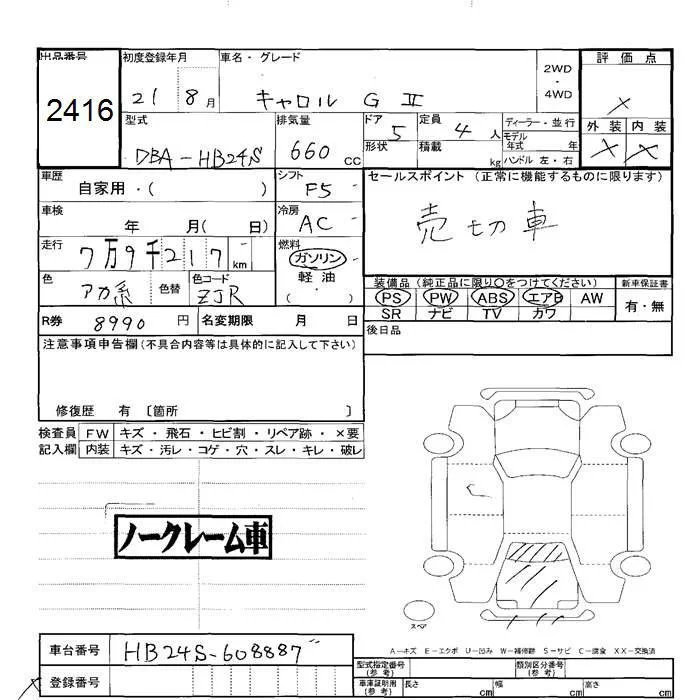 出品番号
2416
初度登録年月
21 8月
車名・グレード
キャロル G Ⅱ
2WD
・
4WD
評価点
×
外装 内装
× ×
型式
DBA-HB24S
排気量
660 CC
ドア
5
形状
定員
4 人
積載
kg
ディーラー・並行
モデル
年式 年
ハンドル 左・右
車歴
自家用・( )
シフト
F5
セールスポイント (正常に機能するものに限ります)
売切車
車検
年 月( 日)
冷房
AC
走行
7万9千217 km
燃料
ガソリン
軽油
( ・ )
色
アカ系
色替
色コード
ZJR
装備品 (純正品に限り○をつけてください)
PS PW ABS エアB AW
SR ナビ TV カワ
新車保証書
有・無
R券 8990 円
名変期限 月 日
後日品
注意事項申告欄(不具合内容等は具体的に記入して下さい)
修復歴 有 〔箇所 〕
検査員 FW キズ・飛石・ヒビ割・リペア跡・×要
記入欄 内装 キズ・汚レ・コゲ・穴・スレ・キレ・破レ
ノークレーム車
スペア
A-キズ E-エクボ U-凹み W-補修跡 S-サビ C-腐食 XX-交換済
車台番号 HB24S-608887
登録番号
型式指定番号
(参考)
類別区分番号
(参考)
車庫証明用
(参考)
長さ cm 幅 cm 高さ cm